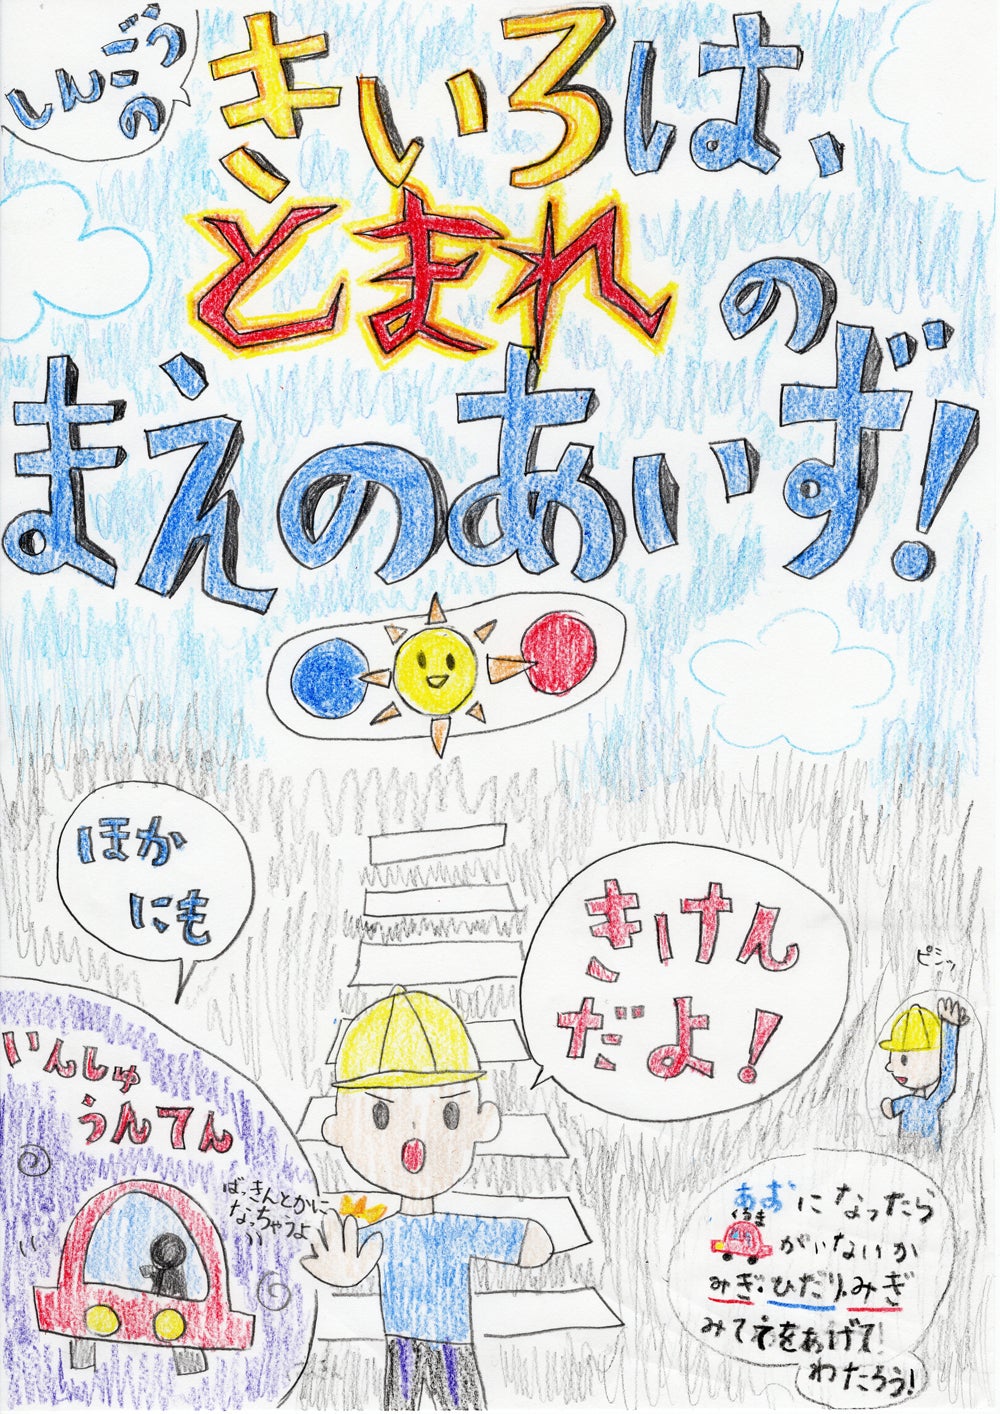 しんごうの
きいろは、
とまれの
まえのあいず!
ほか
にも
きけん
だよ!
ピシッ
いんしゅ
うんてん
ばっきんとかに
なっちゃうよ
あおになったら
くるま
がいないか
みぎ・ひだり、みぎ
みててをあげて!
わたろう!